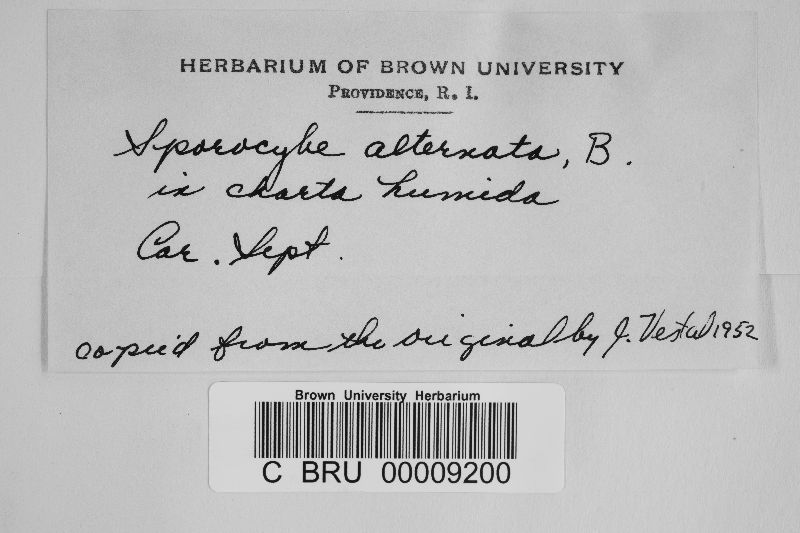 HERBARIUM OF BROWN UNIVERSITY
PROVIDENCE, R. I.
Sporocybe alternata, B.
in charta humida
Car. Sept.
copied from the original by J. Vestal 1952
Brown University Herbarium
C BRU 00009200